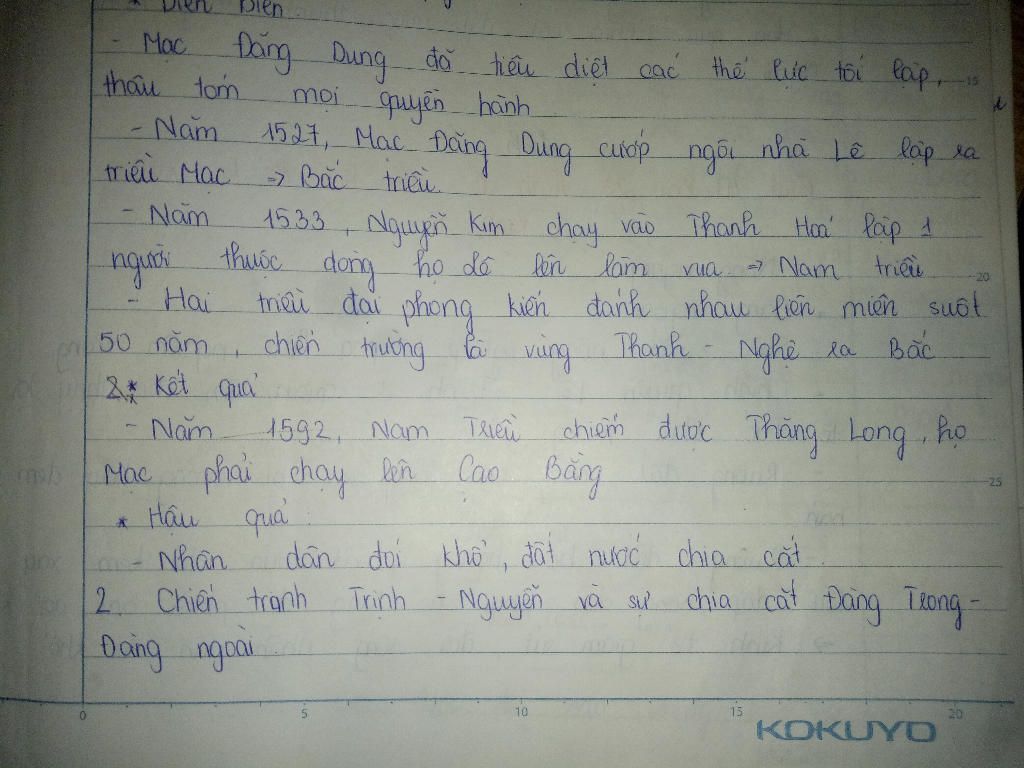 * Diễn Biến
- Mạc Đăng Dung đã tiêu diệt các thế lực tối lập,
thâu tóm mọi quyền hành
- Năm 1527, Mạc Đăng Dung cướp ngôi nhà Lê lập ra
triều Mạc → Bắc triều.
- Năm 1533, Nguyễn Kim chạy vào Thanh Hoá lập 1
người thuộc dòng họ Lê lên làm vua → Nam triều
- Hai triều đại phong kiến đánh nhau liên miên suốt
50 năm, chiến trường là vùng Thanh - Nghệ ra Bắc
* Kết quả
- Năm 1592, Nam Triều chiếm được Thăng Long, họ
Mạc phải chạy lên Cao Bằng
* Hậu quả:
- Nhân dân đói khổ, đất nước chia cắt.
2. Chiến tranh Trịnh - Nguyễn và sự chia cắt Đàng Trong -
Đàng ngoài.
15
20
25
0 5 10 15 20
KOKUYO